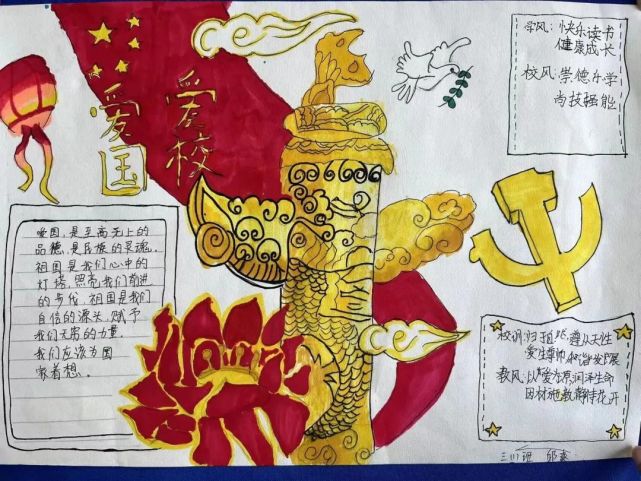 爱国
爱校
学风:快乐读书
健康成长
校风:崇德乐学
尚技强能
爱国,是至高无上的
品德,是民族的灵魂.
祖国是我们心中的
灯塔,照亮我们前进
的步伐,祖国是我们
自信的源头,赋予
我们无穷的力量.
我们应该为国
家着想.
校训:归
遵从天性
爱生尊师 和谐发展
教风:以爱为
润泽生命
因材施教 静待花开
三(1)班